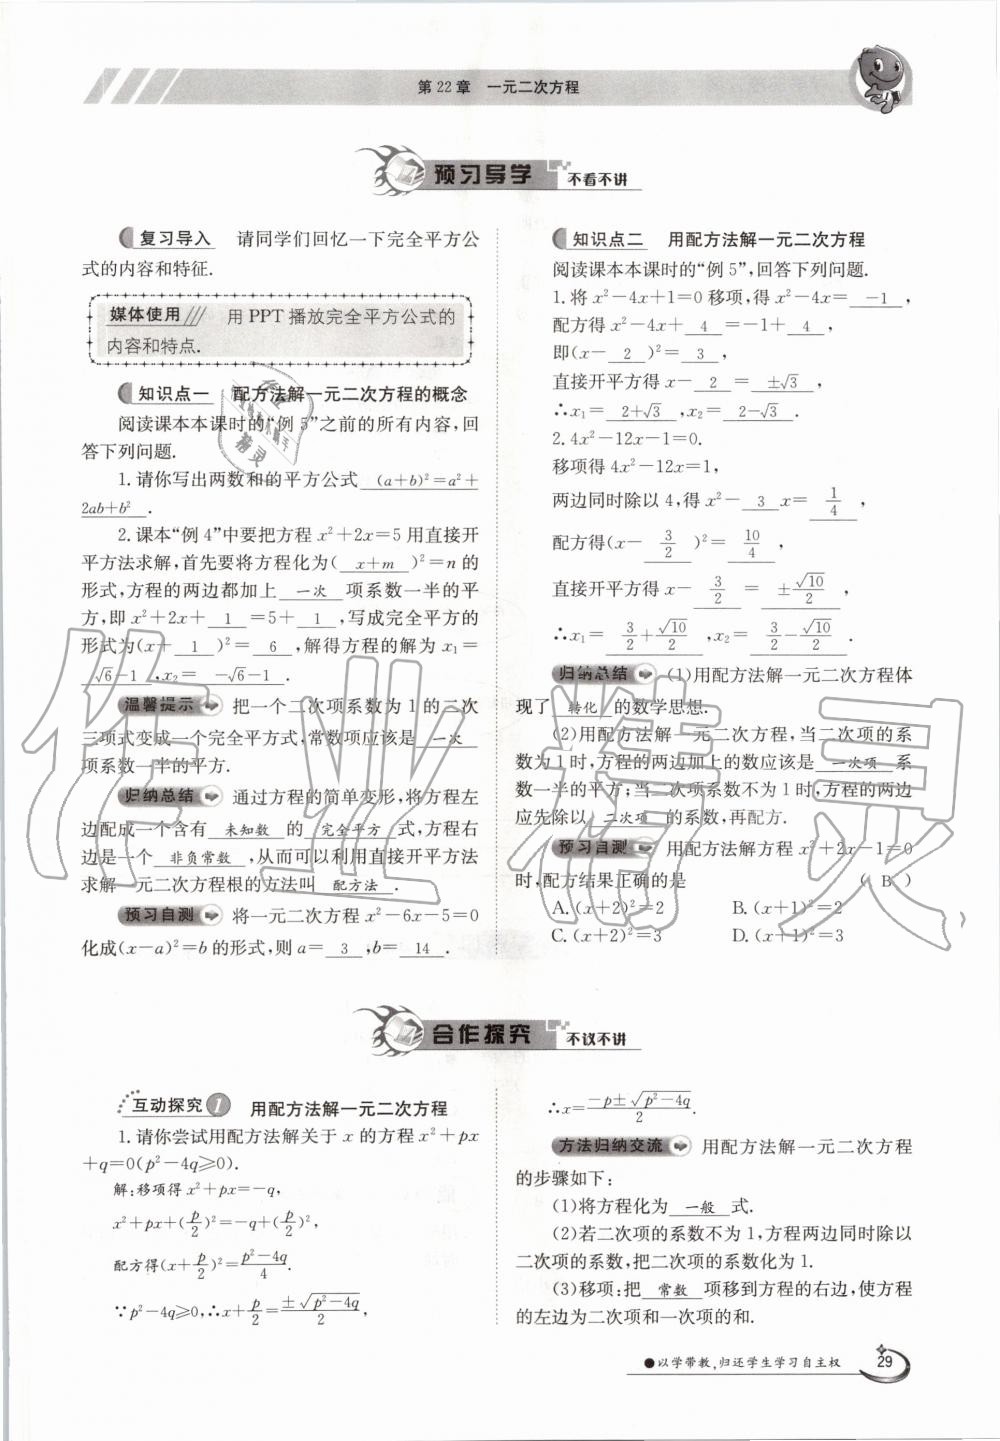 第22章 一元二次方程
预习导学 不看不讲
复习导入 请同学们回忆一下完全平方公
式的内容和特征.
媒体使用 用PPT播放完全平方公式的
内容和特点.
知识点一 配方法解一元二次方程的概念
阅读课本本课时的“例5”之前的所有内容,回
答下列问题.
1.请你写出两数和的平方公式 (a+b)²=a²+
2ab+b² .
2.课本“例4”中要把方程x²+2x=5用直接开
平方法求解,首先要将方程化为( x+m )²=n的
形式,方程的两边都加上 一次 项系数一半的平
方,即x²+2x+ 1 =5+ 1 ,写成完全平方的
形式为(x+ 1 )²= 6 ,解得方程的解为x₁=
√6-1 ,x₂= -√6-1 .
温馨提示 把一个二次项系数为1的二次
三项式变成一个完全平方式,常数项应该是 一次
项系数一半的平方.
归纳总结 通过方程的简单变形,将方程左
边配成一个含有 未知数 的 完全平方 式,方程右
边是一个 非负常数 ,从而可以利用直接开平方法
求解一元二次方程根的方法叫 配方法 .
预习自测 将一元二次方程x²-6x-5=0
化成(x-a)²=b的形式,则a= 3 ,b= 14 .
知识点二 用配方法解一元二次方程
阅读课本本课时的“例5”,回答下列问题.
1.将x²-4x+1=0移项,得x²-4x= -1 ,
配方得x²-4x+ 4 =-1+ 4 ,
即(x- 2 )²= 3 ,
直接开平方得x- 2 = ±√3 ,
∴x₁= 2+√3 ,x₂= 2-√3 .
2.4x²-12x-1=0.
移项得4x²-12x=1,
两边同时除以4,得x²- 3 x= 1/4 ,
配方得(x- 3/2 )²= 10/4 ,
直接开平方得x- 3/2 = ±√10/2 ,
∴x₁= 3/2+√10/2 ,x₂= 3/2-√10/2 .
归纳总结 (1)用配方法解一元二次方程体
现了 转化 的数学思想.
(2)用配方法解一元二次方程,当二次项的系
数为1时,方程的两边加上的数应该是 一次项 系
数一半的平方;当二次项系数不为1时,方程的两边
应先除以 二次项 的系数,再配方.
预习自测 用配方法解方程x²+2x-1=0
时,配方结果正确的是 ( B )
A.(x+2)²=2 B.(x+1)²=2
C.(x+2)²=3 D.(x+1)²=3
合作探究 不议不讲
互动探究1 用配方法解一元二次方程
1.请你尝试用配方法解关于x的方程x²+px
+q=0(p²-4q≥0).
解:移项得x²+px=-q,
x²+px+(p/2)²=-q+(p/2)²,
配方得(x+p/2)²=(p²-4q)/4.
∵p²-4q≥0,∴x+p/2=±√(p²-4q)/2,
∴x=(-p±√(p²-4q))/2.
方法归纳交流 用配方法解一元二次方程
的步骤如下:
(1)将方程化为 一般 式.
(2)若二次项的系数不为1,方程两边同时除以
二次项的系数,把二次项的系数化为1.
(3)移项:把 常数 项移到方程的右边,使方程
的左边为二次项和一次项的和.
●以学带教,归还学生学习自主权 29
作业精灵